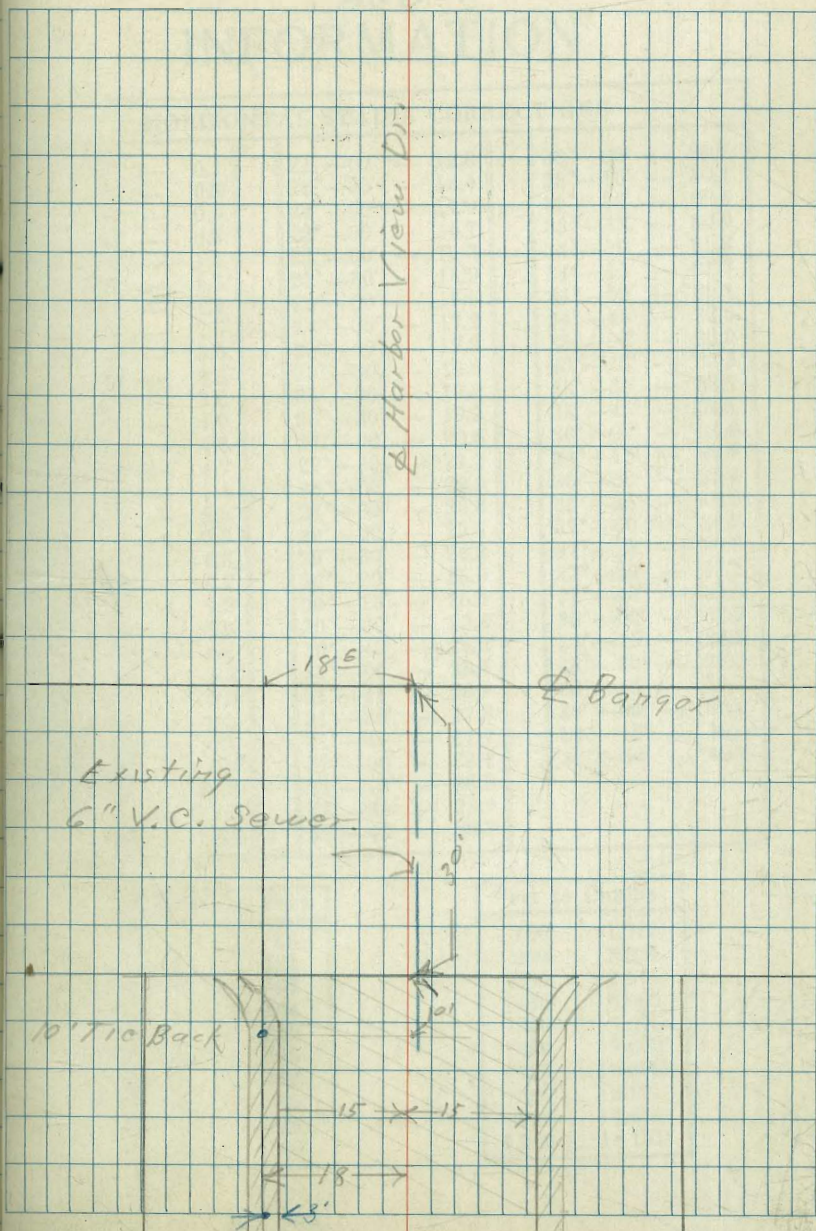 ℄ Harbor View Dr.
18⁶
℄ Bangor
Existing
6" V.C. Sewer
30'
10' Tie Back
10'
15 15
18
3'